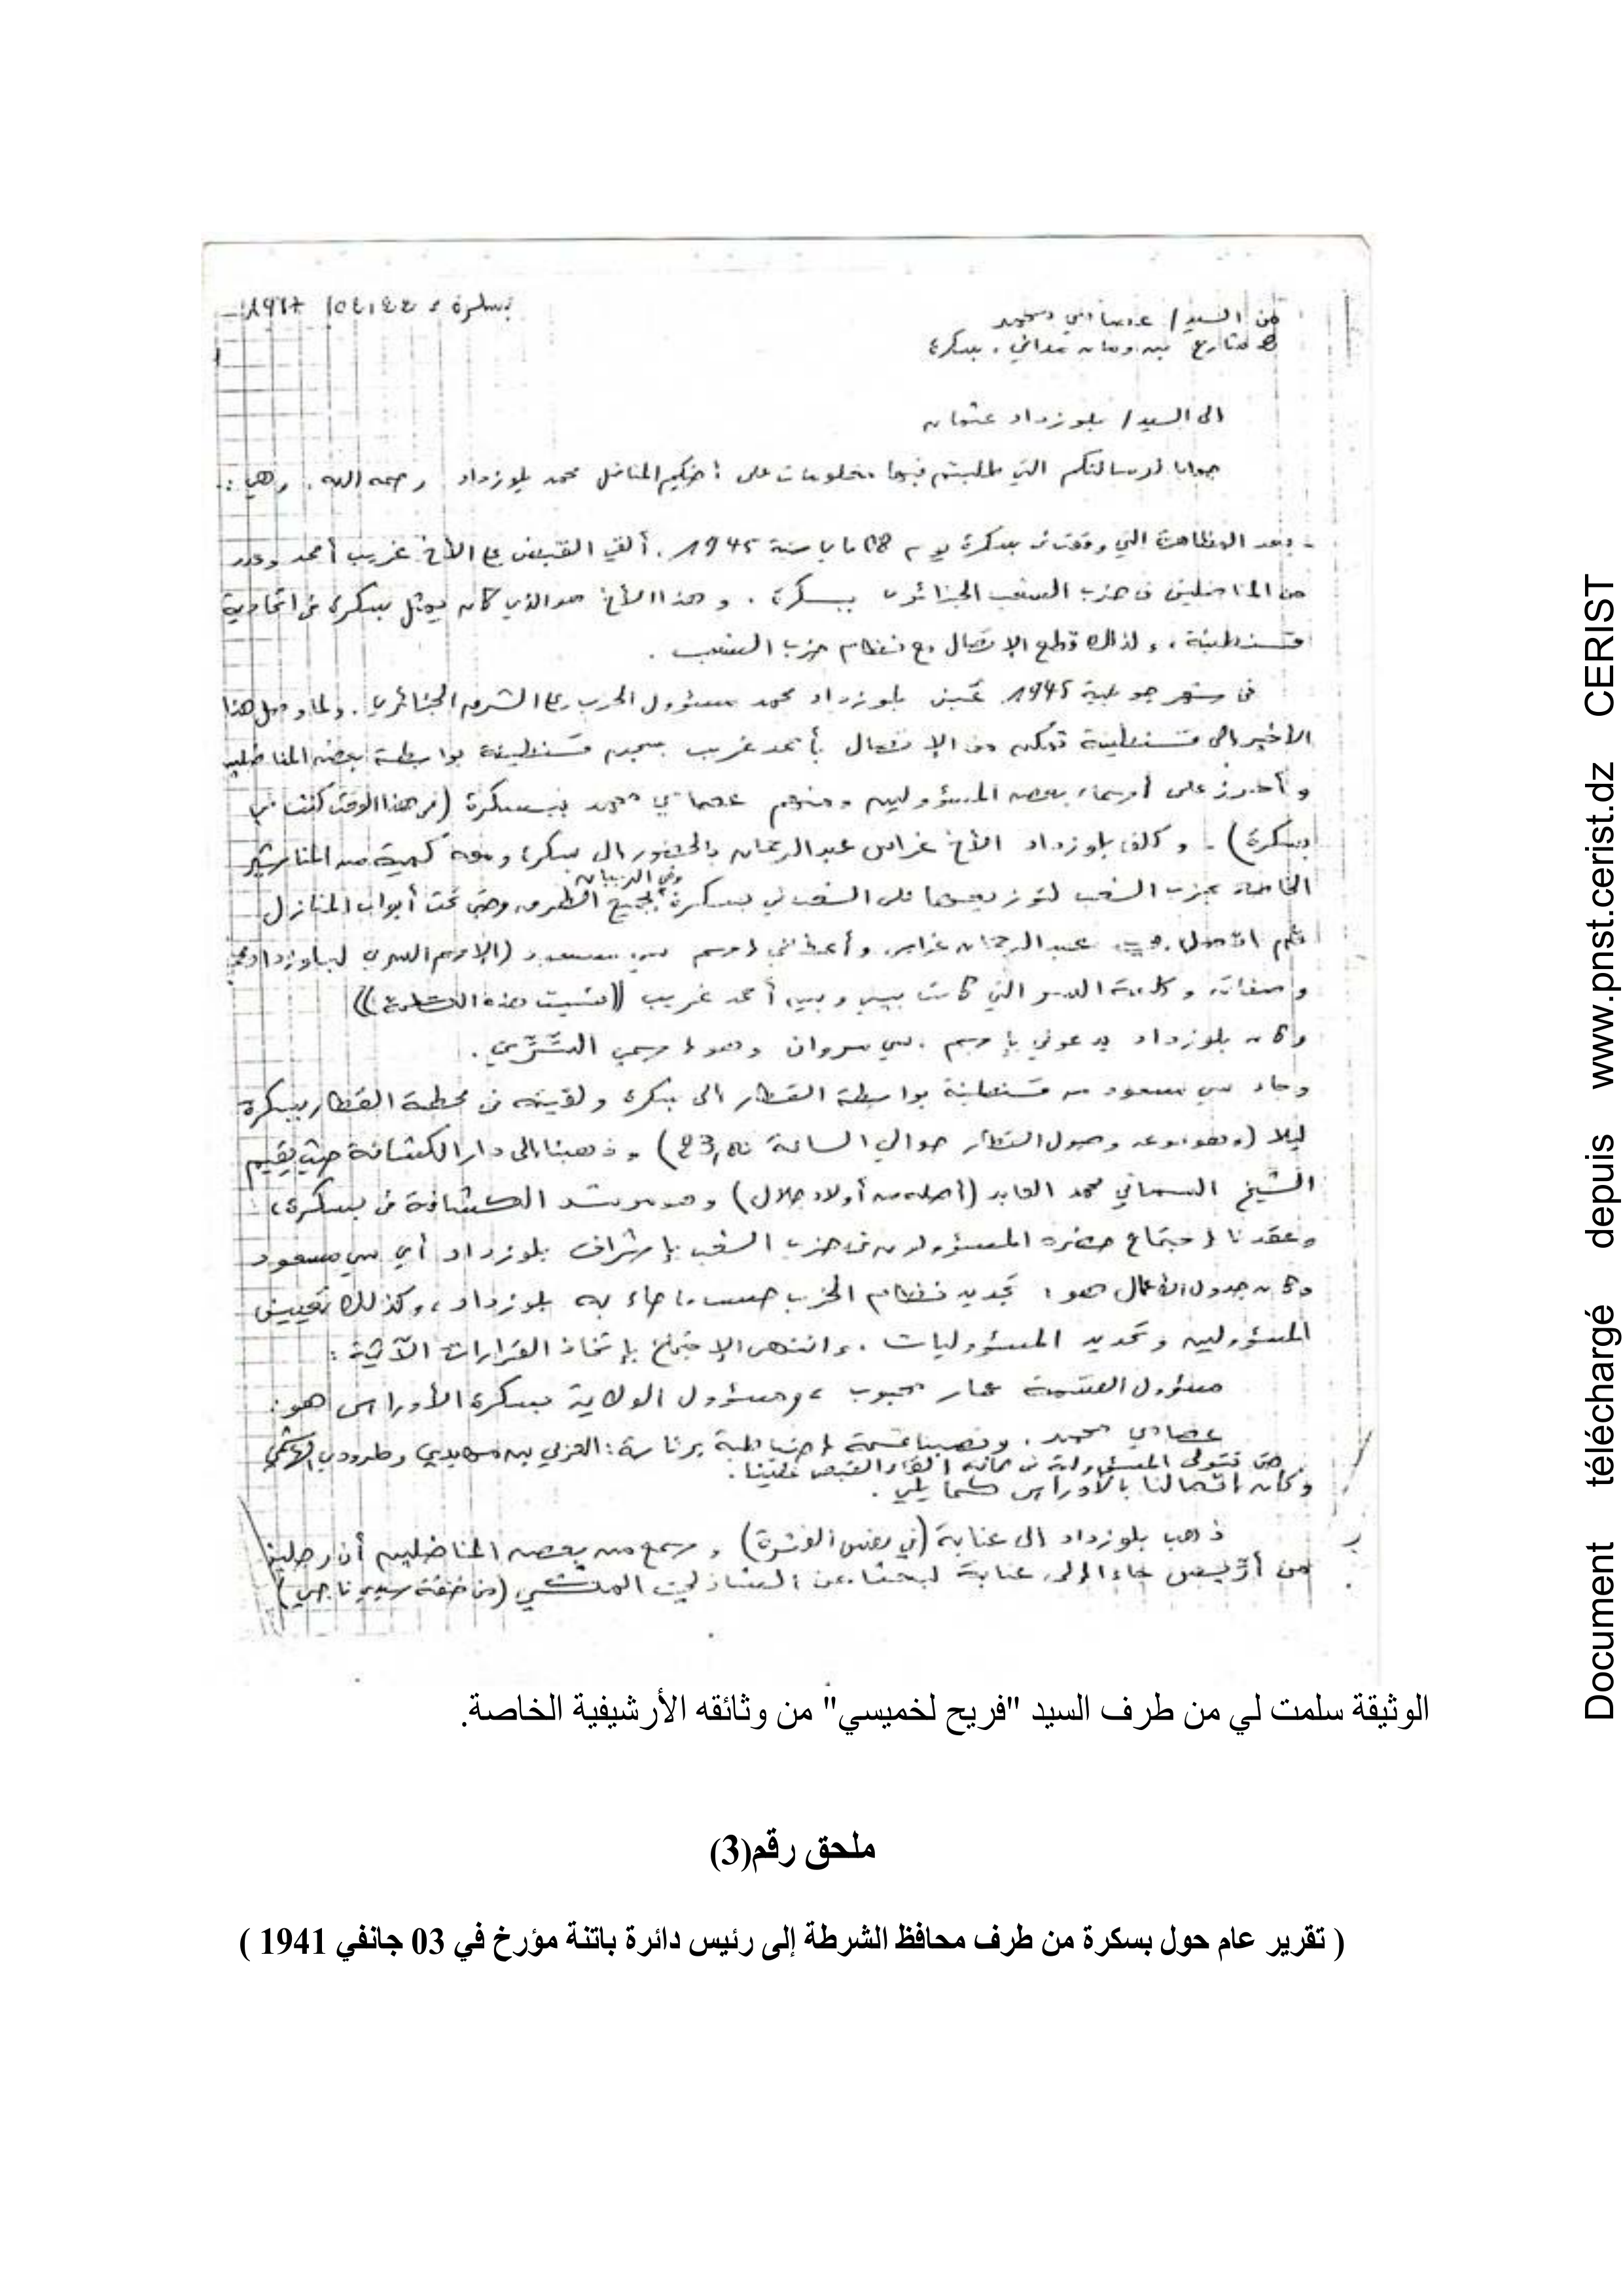 من السيد / عصامي محمد
شارع بسكرة
بسكرة
الى السيد / بلوزداد عثمان
جوابا لرسالتكم التي طلبتم فيها معلومات على أخيكم المناضل محمد بلوزداد رحمه الله. وهي:
- بعد المظاهرة التي وقعت في بسكرة يوم 08 ماي سنة 1945. ألقي القبض على الأخ غريب أحمد وعدد
من المناضلين في حزب الشعب الجزائري ببسكرة. وهذا الأخ هو الذي كان يمثل بسكرة في اتحادية
قسنطينة، ولذلك قطع الإتصال مع نظام حزب الشعب.
في شهر جويلية 1945 عين بلوزداد محمد مسؤول الحزب على الشرق الجزائري. ولما وصل هذا
الأخير الى قسنطينة تمكن من الإتصال بأحمد غريب بسجن قسنطينة بواسطة بعض المناضلين
وأحرز على أسماء بعض المسؤولين ومنهم عصامي محمد ببسكرة (في هذا الوقت كنت في
بسكرة). وكلف بلوزداد الأخ غراس عبد الرحمان بالحضور الى بسكرة ومعه كمية من المناشير
وفي الزيبان
الخاصة بحزب الشعب لتوزيعها على الشعب في بسكرة بجميع الطرق وحتى تحت أبواب المنازل
عبد الرحمان غراس وأعطاني إسم سي مسعود (الإسم السري لبلوزداد محمد
وصفاته وكلمة السر التي كانت بيني وبين أحمد غريب ((نسيت هذه الكلمة))
وكان بلوزداد يدعوني بإسم سي مروان وهو إسمي السّرّي.
وجاء سي مسعود من قسنطينة بواسطة القطار الى بسكرة ولقيته في محطة القطار ببسكرة
ليلا (وهو موعد وصول القطار حوالي الساعة 23) وذهبنا الى دار الكشافة حيث يقيم
الشيخ السماتي محمد العابد (أصله من أولاد جلال) وهو مرشد الكشافة في بسكرة،
وعقدنا إجتماع حضره المسؤولون في حزب الشعب بإشراف بلوزداد أي سي مسعود
وكان جدول الأعمال هو: تجديد نظام الحزب حسب ما جاء به بلوزداد، وكذلك تعيين
المسؤولين وتحديد المسؤوليات. وانتهى الإجتماع بإتخاذ القرارات الآتية:
مسؤول القسمة عمار محبوب، ومسؤول الولاية بسكرة الأوراس هو:
عصامي محمد. ونصبنا قسمة إحتياطية برئاسة: العربي بن مهيدي
حتى تتولى المسؤولية في حالة القاء القبض علينا.
وكان إتصالنا بالأوراس كما يلي.
ذهب بلوزداد الى عنابة (في نفس الفترة)، وسمع من بعض المناضلين أن رجلين
من أريس جاءا إلى عنابة ليبحثا عن الشاذلي المكي (من خنقة سيدي ناجي)
الوثيقة سلمت لي من طرف السيد "فريح لخميسي" من وثائقه الأرشيفية الخاصة.
ملحق رقم(3)
( تقرير عام حول بسكرة من طرف محافظ الشرطة إلى رئيس دائرة باتنة مؤرخ في 03 جانفي 1941 )
Document téléchargé depuis www.pnst.cerist.dz CERIST